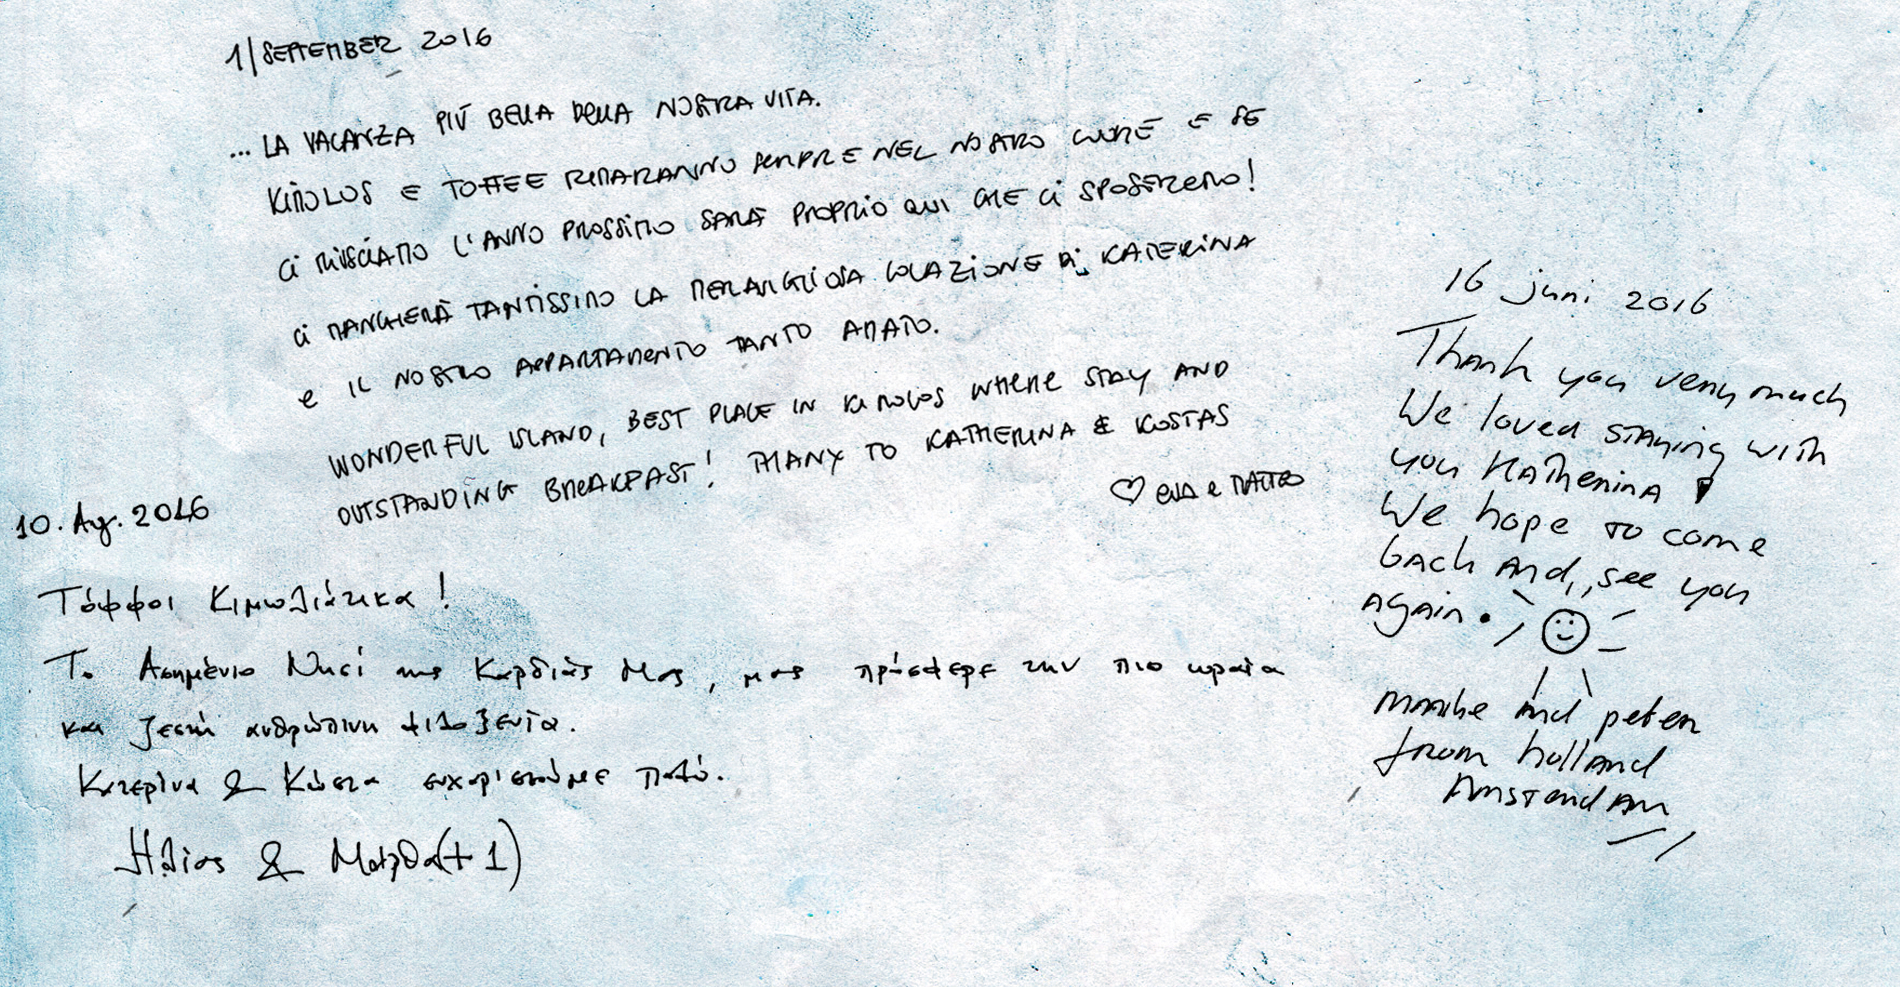 1/SEPTEMBER 2016
... LA VACANZA PIÚ BELLA DELLA NOSTRA VITA.
KIMOLOS E TOFFEE RIMARANNO SEMPRE NEL NOSTRO CUORE E SE
CI RIUSCIAMO L'ANNO PROSSIMO SARÀ PROPRIO QUI CHE CI SPOSEREMO!
CI MANCHERÀ TANTISSIMO LA MERAVIGLIOSA COLAZIONE DI KATERINA
e IL NOSTRO APPARTAMENTO TANTO AMATO.
WONDERFUL ISLAND, BEST PLACE IN KIMOLOS WHERE STAY AND
OUTSTANDING BREAKFAST! THANX TO KATHERINA & KOSTAS
♡ EVA e MATTEO
10. Αυγ. 2016
Τόφφοι Κιμωλιάτικα!
Το Ασημένιο Νησί της Καρδιάς Μας, μας πρόσφερε την πιο ωραία
και ζεστή ανθρώπινη φιλοξενία.
Κατερίνα & Κώστα ευχαριστούμε πολύ.
Ηλίας & Μάρθα (+1)
16 juni 2016
Thank you very much
We loved staying with
you Katherina
We hope to come
back and, see you
again.
maaike and peter
from holland
Amsterdam